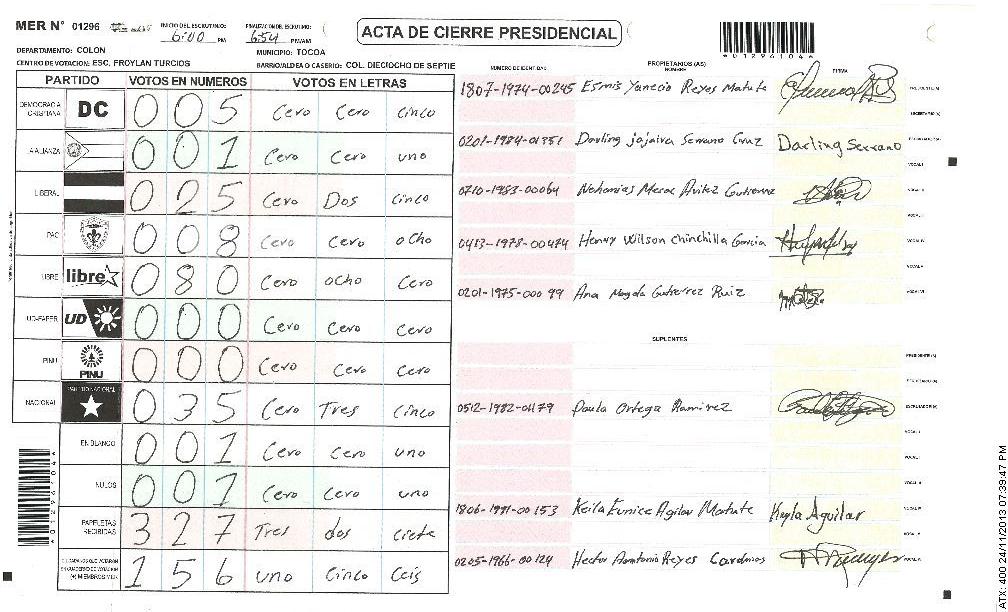 MER N° 01296
INICIO DEL ESCRUTINIO: 6:00 PM
FINALIZACION DEL ESCRUTINIO: 6:54 PM/AM
ACTA DE CIERRE PRESIDENCIAL
*01296104*
DEPARTAMENTO: COLON
MUNICIPIO: TOCOA
CENTRO DE VOTACION: ESC. FROYLAN TURCIOS
BARRIO/ALDEA O CASERIO: COL. DIECIOCHO DE SEPTIE
PARTIDO VOTOS EN NUMEROS VOTOS EN LETRAS
DEMOCRACIA CRISTIANA DC 005 Cero Cero cinco
ALIANZA 001 Cero Cero uno
LIBERAL 025 Cero Dos cinco
PAC 008 Cero Cero ocho
LIBRE libre 080 Cero ocho Cero
UD-FAPER UD 000 Cero Cero Cero
PINU PINU 000 Cero Cero Cero
NACIONAL PARTIDO NACIONAL 035 Cero Tres Cinco
EN BLANCO 001 Cero Cero uno
NULOS 001 Cero Cero uno
PAPELETAS RECIBIDAS 327 Tres dos ciete
CIUDADANOS QUE VOTARON EN CUADERNO DE VOTACION (+) MIEMBROS MER 156 uno Cinco Ceis
NUMERO DE IDENTIDAD PROPIETARIOS (AS) NOMBRE FIRMA
1807-1974-00245 Esmis Yanecio Reyes Matute PRESIDENTE(A)
SECRETARIO(A)
0201-1984-01351 Darling jajaira Serrano Cruz Darling Serrano ESCRUTADOR(A)
VOCAL I
0710-1983-00064 VOCAL II
VOCAL III
0413-1975-00474 Henry Wilson Chinchilla Garcia VOCAL IV
VOCAL V
0201-1975-00099 Ana Magda Gutierrez Ruiz VOCAL VI
SUPLENTES
PRESIDENTE(A)
SECRETARIO(A)
0512-1982-01179 Paula Ortega Ramirez ESCRUTADOR(A)
VOCAL I
VOCAL II
VOCAL III
1806-1991-00153 Keila Eunice Agilar Matute Keyla Aguilar VOCAL IV
VOCAL V
0205-1966-00124 Hector Antonio Reyes VOCAL VI
*01296104*
ATX: 400 24/11/2013 07:39:47 PM